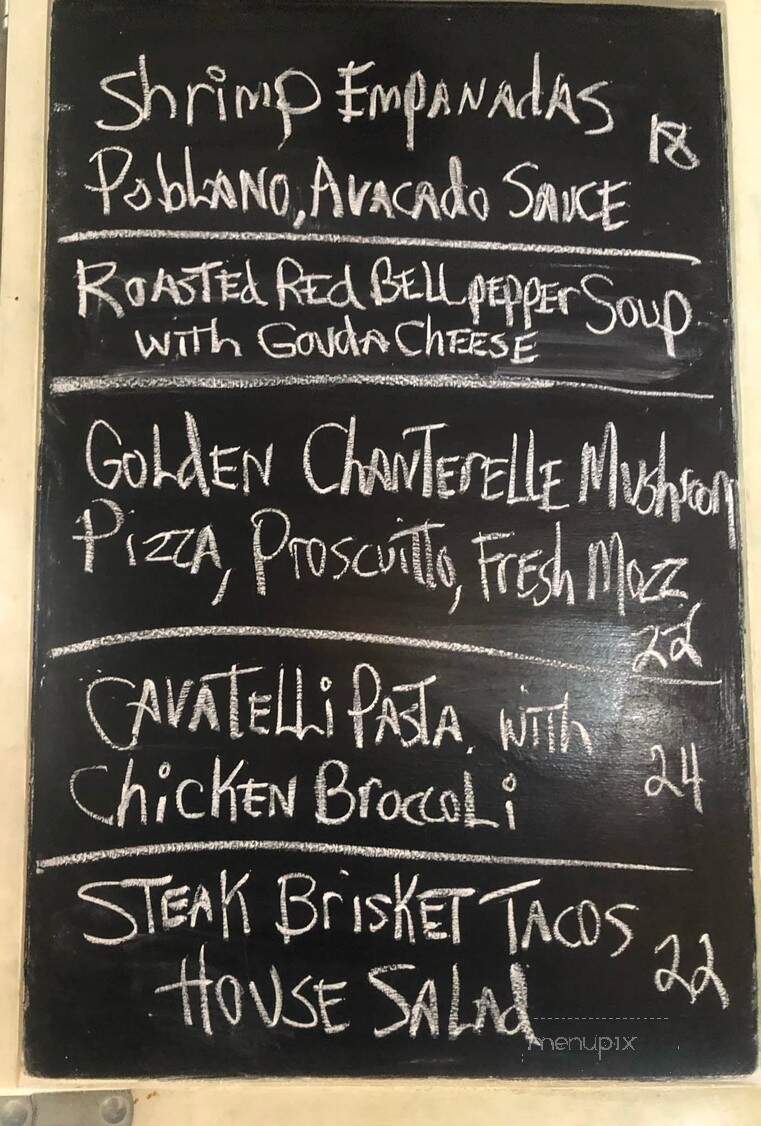 Shrimp Empanadas
18
Poblano, Avacado Sauce
Roasted Red Bell pepper Soup
with Gouda Cheese
Golden Chanterelle Mushroom
Pizza, Proscuitto, Fresh Mozz
22
Cavatelli Pasta, with
24
Chicken Broccoli
Steak Brisket Tacos
22
House Salad
menupix